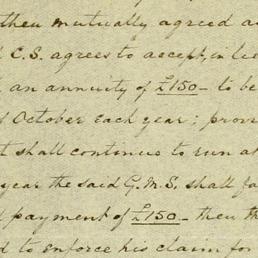 then mutually agreed
C.S. agrees to accept, in
an annuity of £150 – to be
October each year; prov
shall continue to run at
year the said G.M.S. shall fa
payment of £150 – then th
to enforce his claim for